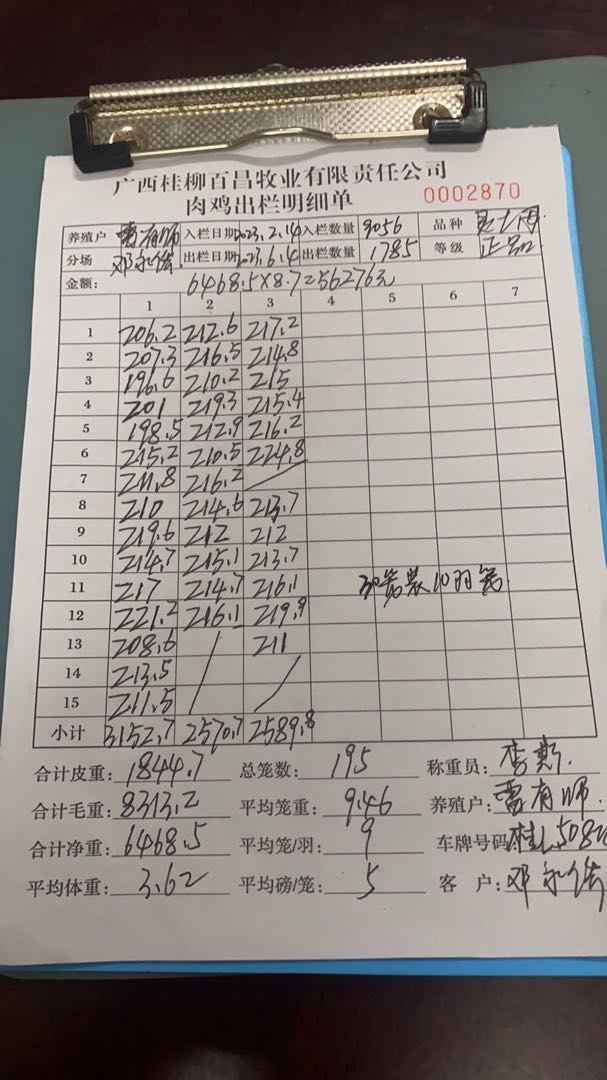 广西桂柳百昌牧业有限责任公司
肉鸡出栏明细单 0002870
养殖户 曹有师 入栏日期 2023.2.14 入栏数量 9056 品种
分场 邓永 出栏日期 2023.6.4 出栏数量 1785 等级 正品
金额: 6468.5×8.7=56276元
1 2 3 4 5 6 7
1 206.2 212.6 217.2
2 207.3 216.5 214.8
3 196.6 210.2 215
4 201 219.3 215.4
5 198.5 212.9 216.2
6 215.2 210.5 224.8
7 211.8 216.2
8 210 214.6 213.7
9 219.6 212 212
10 214.7 215.1 213.7
11 217 214.7 216.1 30笼装10羽笼
12 221.2 216.1 219.9
13 208.6 211
14 213.5
15 211.5
小计 3152.7 2570.7 2589.8
合计皮重: 1844.7 总笼数: 195 称重员: 李
合计毛重: 8313.2 平均笼重: 9.46 养殖户: 曹有师
合计净重: 6468.5 平均笼/羽: 9 车牌号码: 桂L508
平均体重: 3.62 平均磅/笼: 5 客 户: 邓永